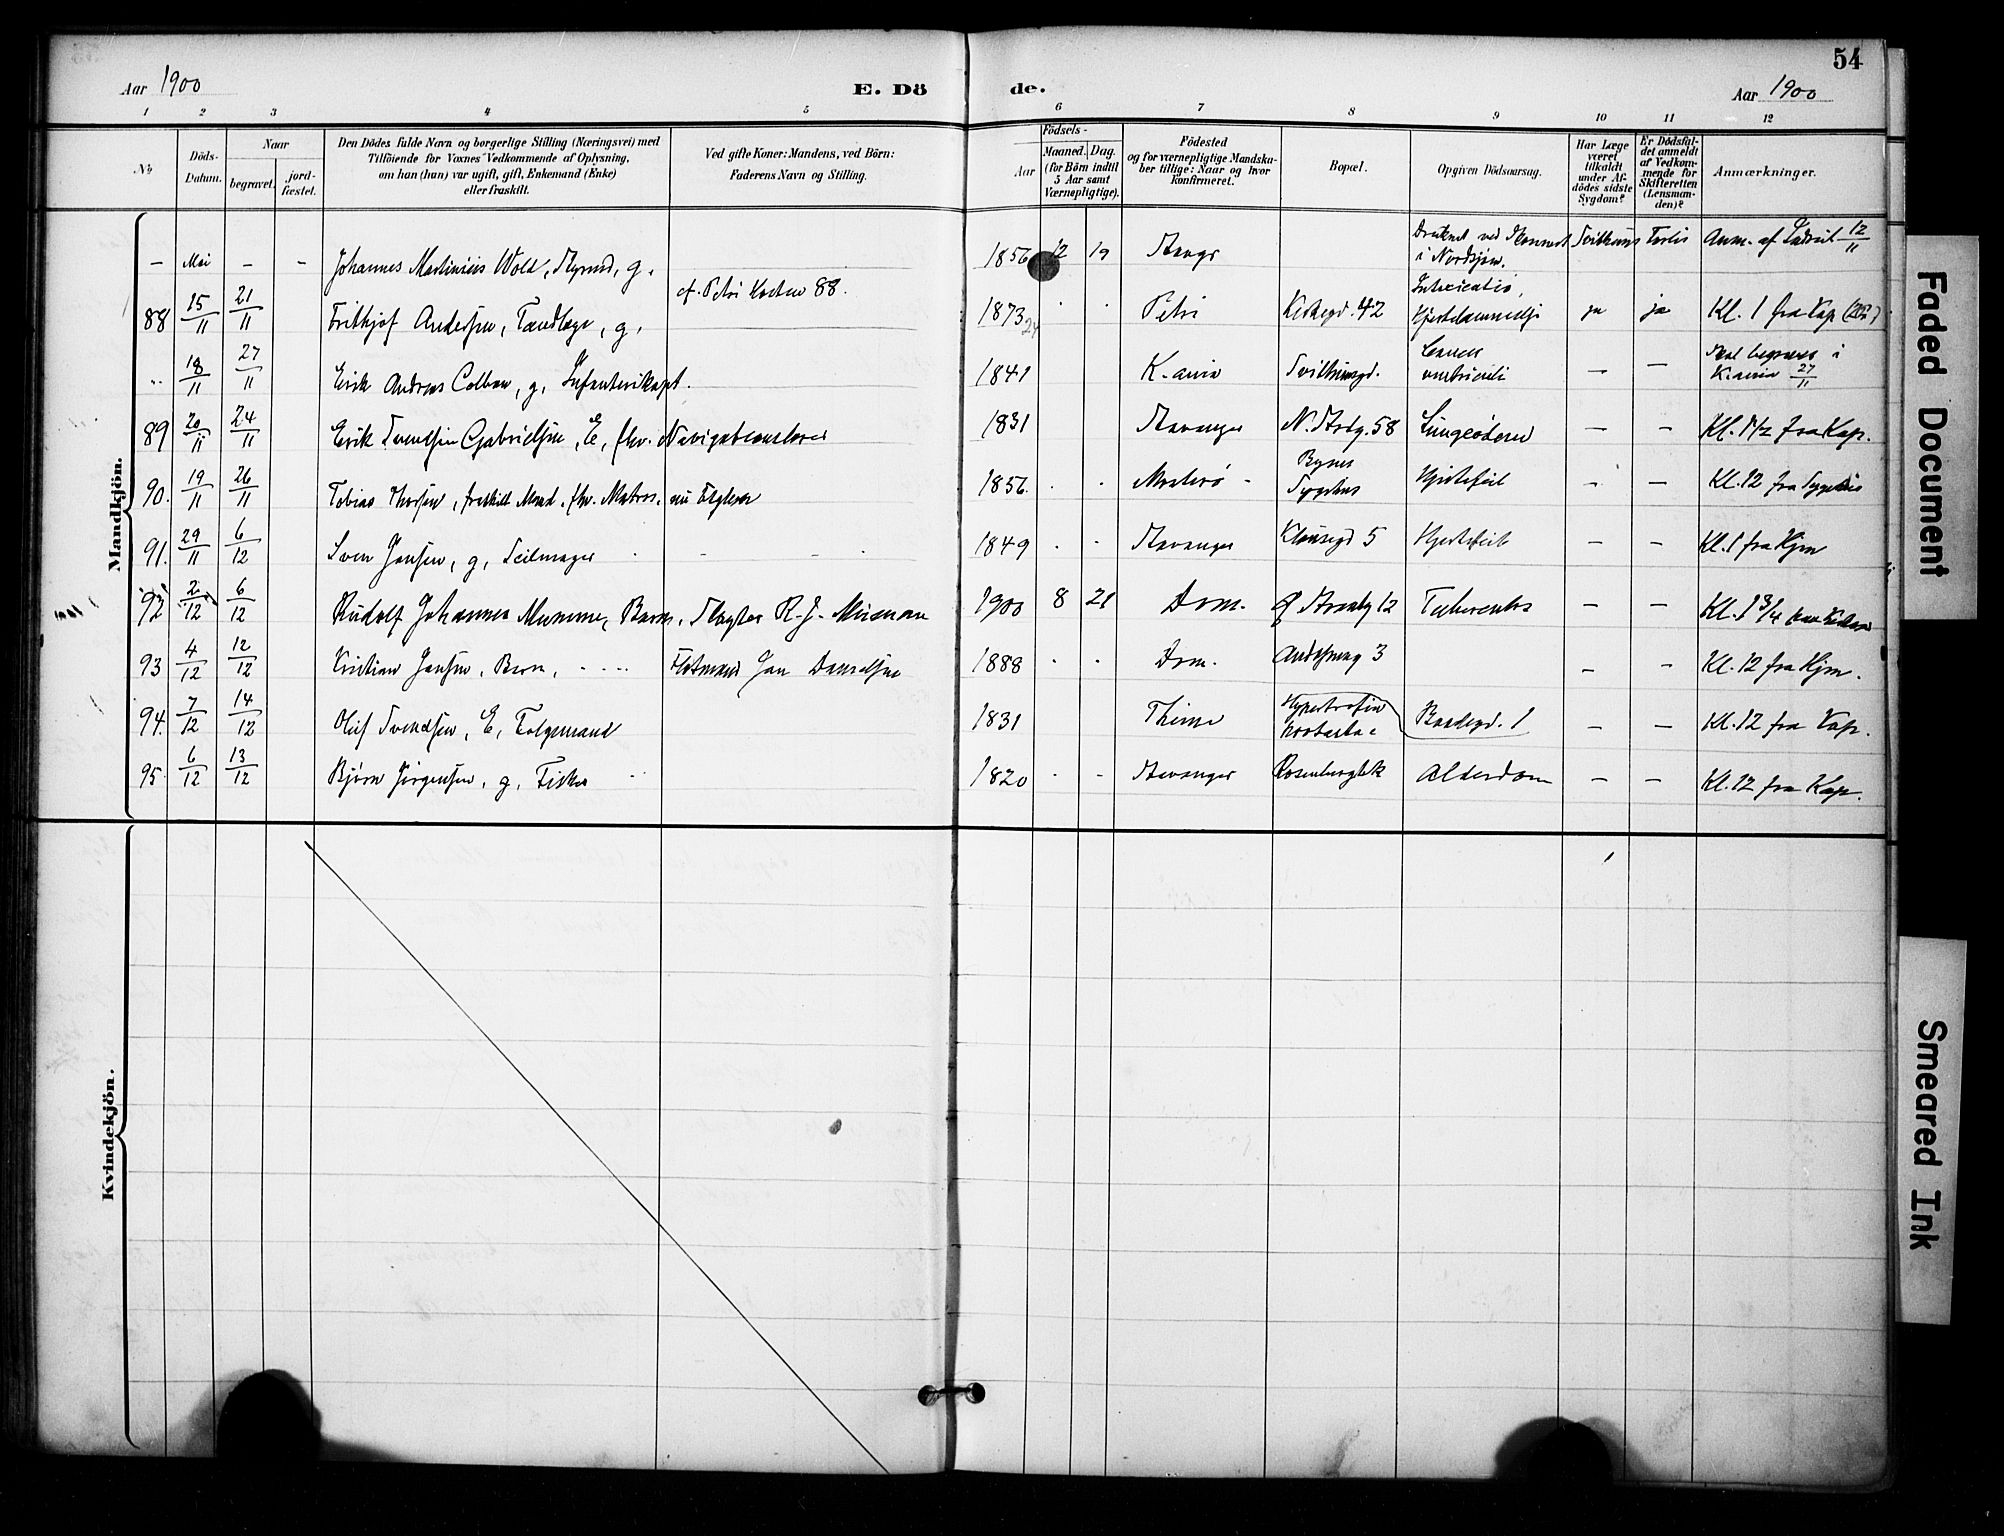 54
Aar 1900
E. Dö
de.
Aar 1900
1 2 3 4 5 6 7 8 9 10 11 12
No
Döds-
Datum.
Naar
begravet.
jord-
fæstet.
Den Dödes fulde Navn og borgerlige Stilling (Næringsvei) med
Tilföiende for Voxnes Vedkommende af Oplysning,
om han (hun) var ugift, gift, Enkemand (Enke)
eller fraskilt.
Ved gifte Koner: Mandens, ved Börn:
Faderens Navn og Stilling.
Födsels-
Aar
Maaned. Dag.
(for Börn indtil
5 Aar samt
Værnepligtige).
Födested
og for værnepligtige Mandska-
ber tillige: Naar og hvor
Konfirmeret.
Bopæl.
Opgiven Dödsaarsag.
Har Læge
været
tilkaldt
under Af-
dödes sidste
Sygdom?
Er Dödsfal-
det anmeldt
af Vedkom-
mende for
Skifteretten
(Lensman-
den)?
Anmærkninger.
Mandkjön.
— Mai — — Johannes Martinius Wold, Styrmd, g. 1856 12 19 Stavgr
i Nordsjøen.
88 15/11 21/11 Frithjof Andersen, Tandlæge, g. cf. Petri 88. 1873 Petri Kirkegd. 42 ja ja Kl. 1 fra Kap
18/11 27/11 Erik Andreas Colban, g, Infanterikapt. 1841 K.
Cancer ventriculi — — Skal begraves i
27/11
89 20/11 24/11 Erik Svendsen Gabrielsen, E, fhv. Navigationslærer 1831 Stavanger N. Strdg. 58 — — Kl. fra Kap.
90. 19/11 26/11 Tobias Thorsen, fraskilt Mand, fhv. Matros. 1856. Mosterø Byens
Sygehus Hjertefeil — Kl. 12 fra Sygehus
91. 29/11 6/12 Sven Jansen, g, Seilmager 1849 Stavanger 5 Hjertefeil — — Kl. 1 fra Hjm
92 2/12 6/12 Rudolf Johannes Mumme, Barn, Slagter R. J. 1900 8 21 Dom. 12 Tuberculos — — Kl. 1 3/4
93 4/12 12/12 Kristian Jansen, Barn, Jan Danielsen 1888 Dom. 3 — — Kl. 12 fra Hjm.
94. 7/12 14/12 Oluf Svendsen, E, 1831 Thime Hypertrofia
prostatae 1 — — Kl. 12 fra Kap.
95. 6/12 13/12 Bjørn Jørgensen, g, Fisker 1820 Stavanger Alderdom — — Kl. 12 fra Kap.
Kvindekjön.
Faded Document
Smeared Ink